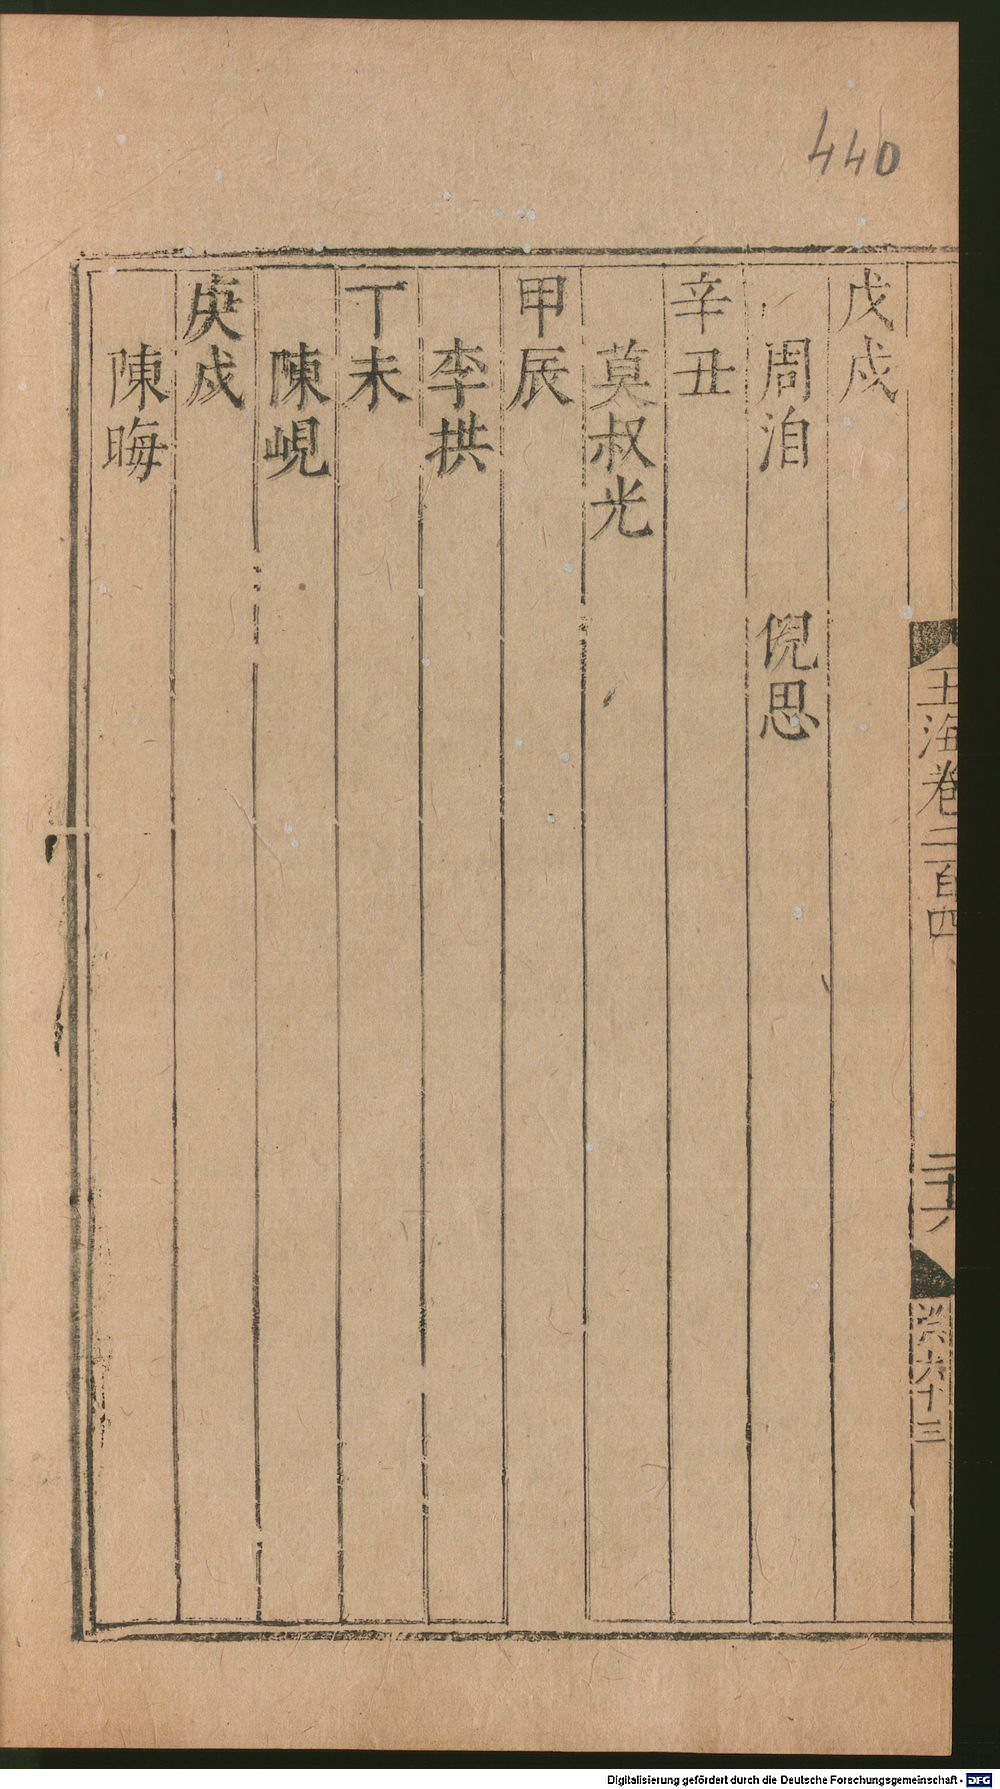 440
戊戌
周洎 倪思
辛丑
莫叔光
甲辰
李拱
丁未
陳峴
庚戌
陳晦
玉海卷二百四
二十六
洪六十三
Digitalisierung gefördert durch die Deutsche Forschungsgemeinschaft - DFG